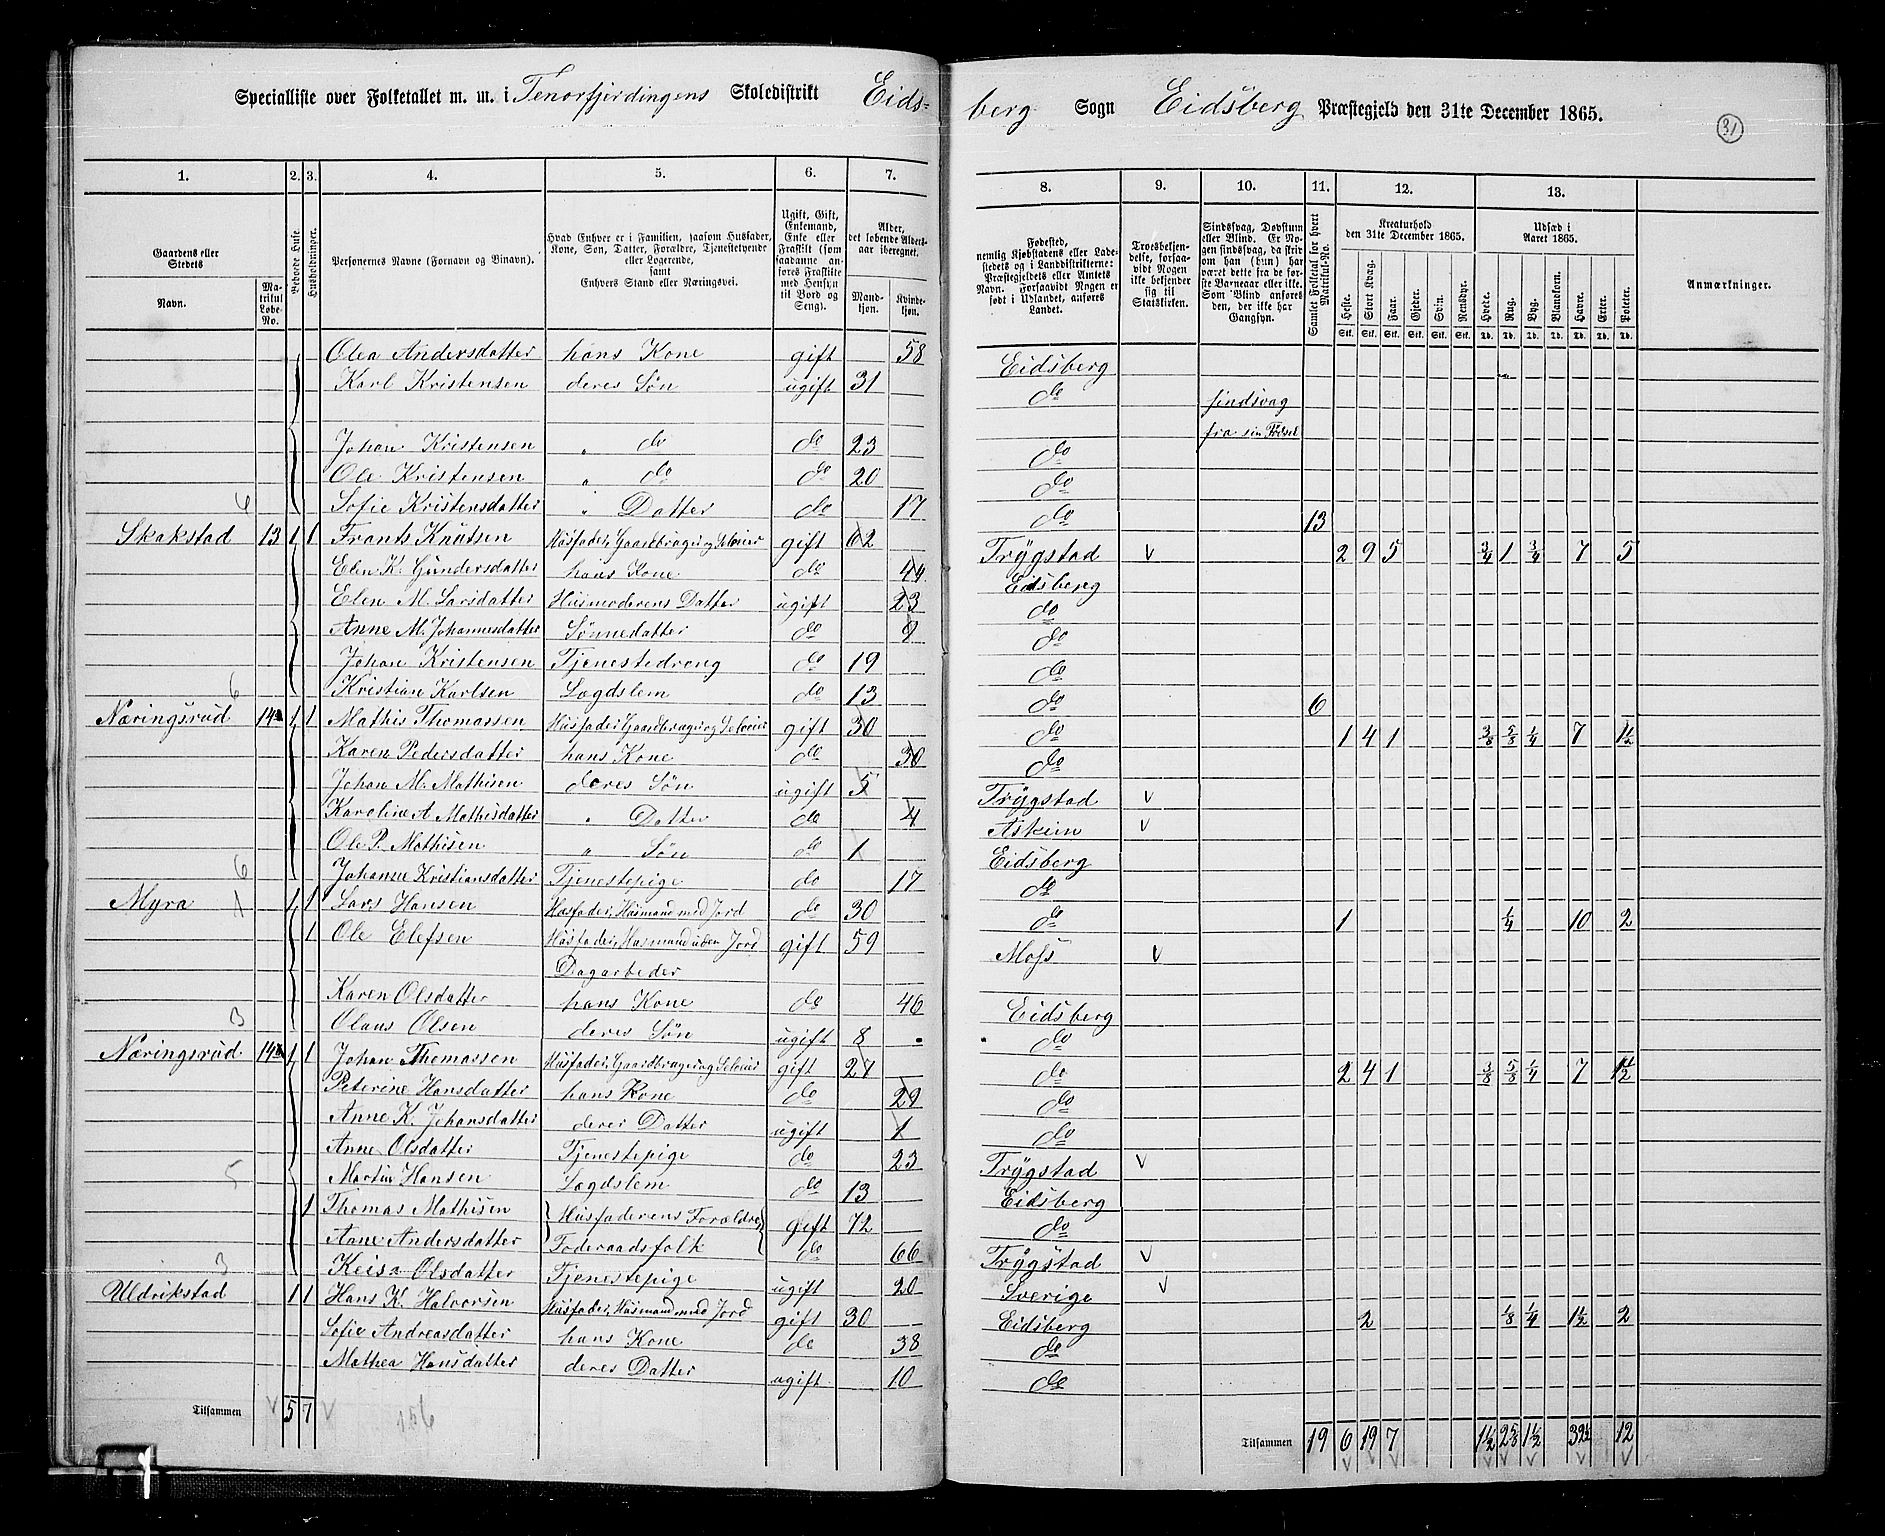 Specialliste over Folketallet m. m. i Tenorfjerdingens Skoledistrikt Eids-
berg Sogn Eidsberg Præstegjeld den 31te December 1865.
31
1. 2. 3. 4. 5. 6. 7.
8. 9. 10. 11. 12. 13.
Gaardens eller Stedets
Navn. Matrikul Løbe-No.
Beboede Huse.
Husholdninger.
Personernes Navne (Fornavn og Binavn).
Hvad Enhver er i Familien, saasom Husfader, Kone, Søn, Datter, Forældre, Tjenestetyende eller Logerende, samt Enhvers Stand eller Næringsvei.
Ugift, Gift, Enkemand, Enke eller Fraskilt (som saadanne anføres Fraskilte med Hensyn til Bord og Seng).
Alder, det løbende Aldersaar iberegnet.
Mandkjøn. Kvindekjøn.
Fødested, nemlig Kjøbstadens eller Ladestedets og i Landdistrikterne: Præstegjeldets eller Amtets Navn. Forsaavidt Nogen er født i Udlandet, anføres Landet.
Troesbekjendelse, forsaavidt Nogen ikke bekjender sig til Statskirken.
Sindssvag, Døvstum eller Blind. Er Nogen sindssvag, da skrives om han (hun) har været dette fra de første Barneaar eller ikke. Som Blind anføres den, der ikke har Gangsyn.
Samlet Folketal for hvert Matrikul-No.
Kreaturhold den 31te December 1865.
Heste. Stort Kvæg. Faar. Gjeder. Svin. Rensdyr.
Udsæd i Aaret 1865.
Hvede. Rug. Byg. Blandkorn. Havre. Erter. Poteter.
Anmærkninger.
Olea Andersdatter hans Kone gift 58 Eidsberg
Karl Kristensen deres Søn ugift 31 do sindsvag
fra sin Fødsel
Johan Kristensen " do do 23 do
Ole Kristensen " do do 20 do
6 Sofie Kristensdatter " Datter do 17 do 13
Skakstad 13 1 1 Frants Knutsen Husfader, Gaardbruger og Seleier gift 62 Trygstad V 2 9 5 3/4 1 3/4 7 5
Elen K. Gundersdatter hans Kone do 44 Eidsberg
Elen M. Larsdatter Husmoderens Datter ugift 23 do
Anne M. Johannesdatter Sønnedatter do 9 do
Johan Kristensen Tjenestedreng do 19 do
6 Kristian Karlsen Lægdslem do 13 do 6
Næringsrud 14a 1 1 Mathis Thomassen Husfader, Gaardbruger og Seleier gift 30 do 1 4 1 3/8 5/8 1/4 7 1 1/2
Karen Pedersdatter hans Kone do 30 do
Johan M. Mathisen deres Søn ugift 5 Trygstad V
Karoline A Mathisdatter " Datter do 4 Askim V
Ole P. Mathisen " Søn do 1 Eidsberg
6 Johanne Kristiansdatter Tjenestepige do 17 do
Myra 1 1 Lars Hansen Husfader, Husmand med Jord do 30 do 1 1/4 10 2
1 Ole Elefsen Husfader, Husmand uden Jord gift 59 Moss V
Dagarbeder
Karen Olsdatter hans Kone do 46 Eidsberg
3 Olaus Olsen deres Søn ugift 8 do
Næringsrud 14b 1 1 Johan Thomassen Husfader, Gaardbruger og Seleier gift 27 do 2 4 1 3/8 5/8 1/4 7 1 1/2
Peterine Hansdatter hans Kone do 29 do
Anne K. Johansdatter deres Datter ugift 1 do
Anne Olsdatter Tjenestepige do 23 Trygstad V
5 Martin Hansen Lægdslem do 13 Eidsberg
1 Thomas Mathisen Husfaderens Forældre gift 72 do
Anne Andersdatter Føderaadsfolk do 66 Trygstad V
3 Keisa Olsdatter Tjenestepige ugift 20 Sverige V
Uldrikstad 1 1 Hans K. Halvorsen Husfader, Husmand med Jord gift 30 Eidsberg 2 1/8 1/4 1 1/2 2
Sofie Andreasdatter hans Kone do 38 do
Mathea Hansdatter deres Datter ugift 10 do
Tilsammen V 5 7 V 156
Tilsammen 19 6 19 7 1 1/2 2 5/8 1 1/2 32 1/2 12